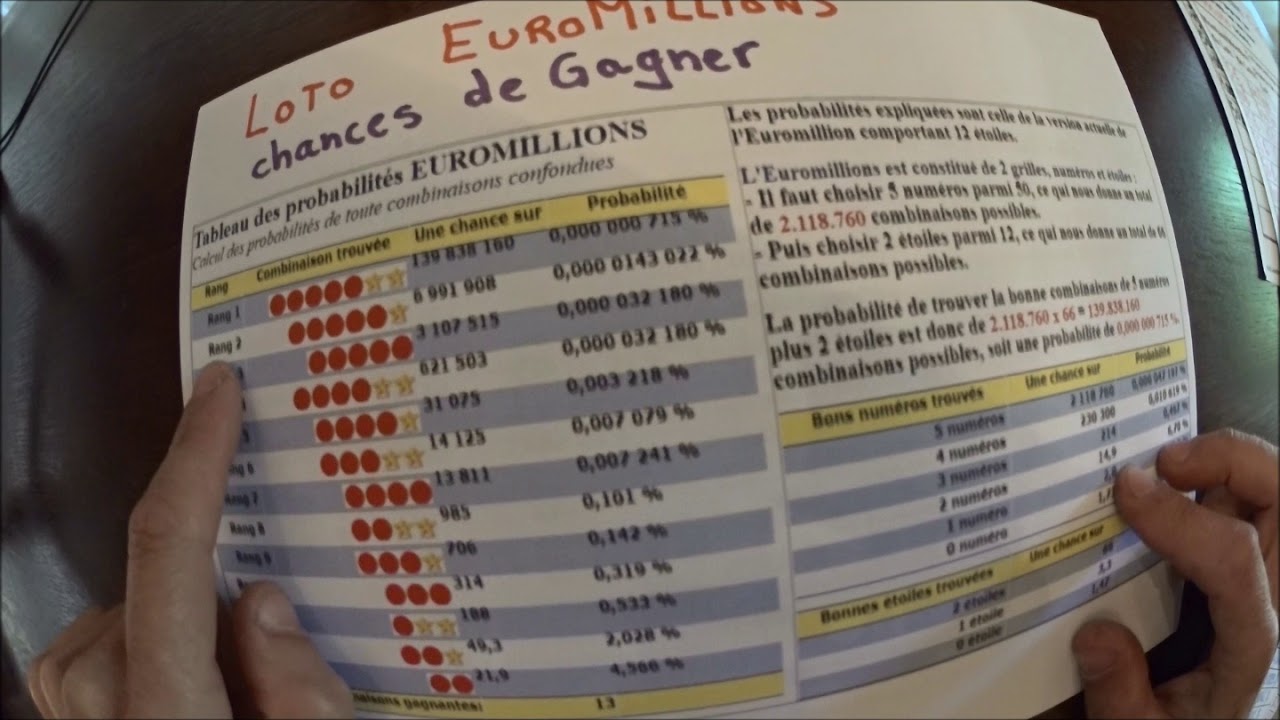 LOTO EUROMILLIONS
chances de Gagner
Tableau des probabilités EUROMILLIONS
Calcul des probabilités de toute combinaisons confondues
Rang Combinaison trouvée Une chance sur Probabilité
Rang 1 139 838 160 0,000 000 715 %
Rang 2 6 991 908 0,000 0143 022 %
3 3 107 515 0,000 032 180 %
621 503 0,000 032 180 %
31 075 0,003 218 %
ng 6 14 125 0,007 079 %
Rang 7 13 811 0,007 241 %
Rang 8 985 0,101 %
Rang 9 706 0,142 %
314 0,319 %
188 0,533 %
49,3 2,028 %
21,9 4,566 %
naisons gagnantes: 13
Les probabilités expliquées sont celle de la version actuelle de
l'Euromillion comportant 12 étoiles.
L'Euromillions est constitué de 2 grilles, numéros et étoiles :
- Il faut choisir 5 numéros parmi 50, ce qui nous donne un total
de 2.118.760 combinaisons possibles.
- Puis choisir 2 étoiles parmi 12, ce qui nous donne un total de 66
combinaisons possibles.
La probabilité de trouver la bonne combinaison de 5 numéros
plus 2 étoiles est donc de 2.118.760 x 66 = 139.838.160
combinaisons possibles, soit une probabilité de 0,000 000 715 %
Bons numéros trouvés Une chance sur Probabilité
5 numéros 2 118 760
4 numéros 230 300
3 numéros 214
2 numéros 14,9
1 numéro
0 numéro
Bonnes étoiles trouvées Une chance sur
2 étoiles 66
1 étoile 3,3
0 étoile 1,47